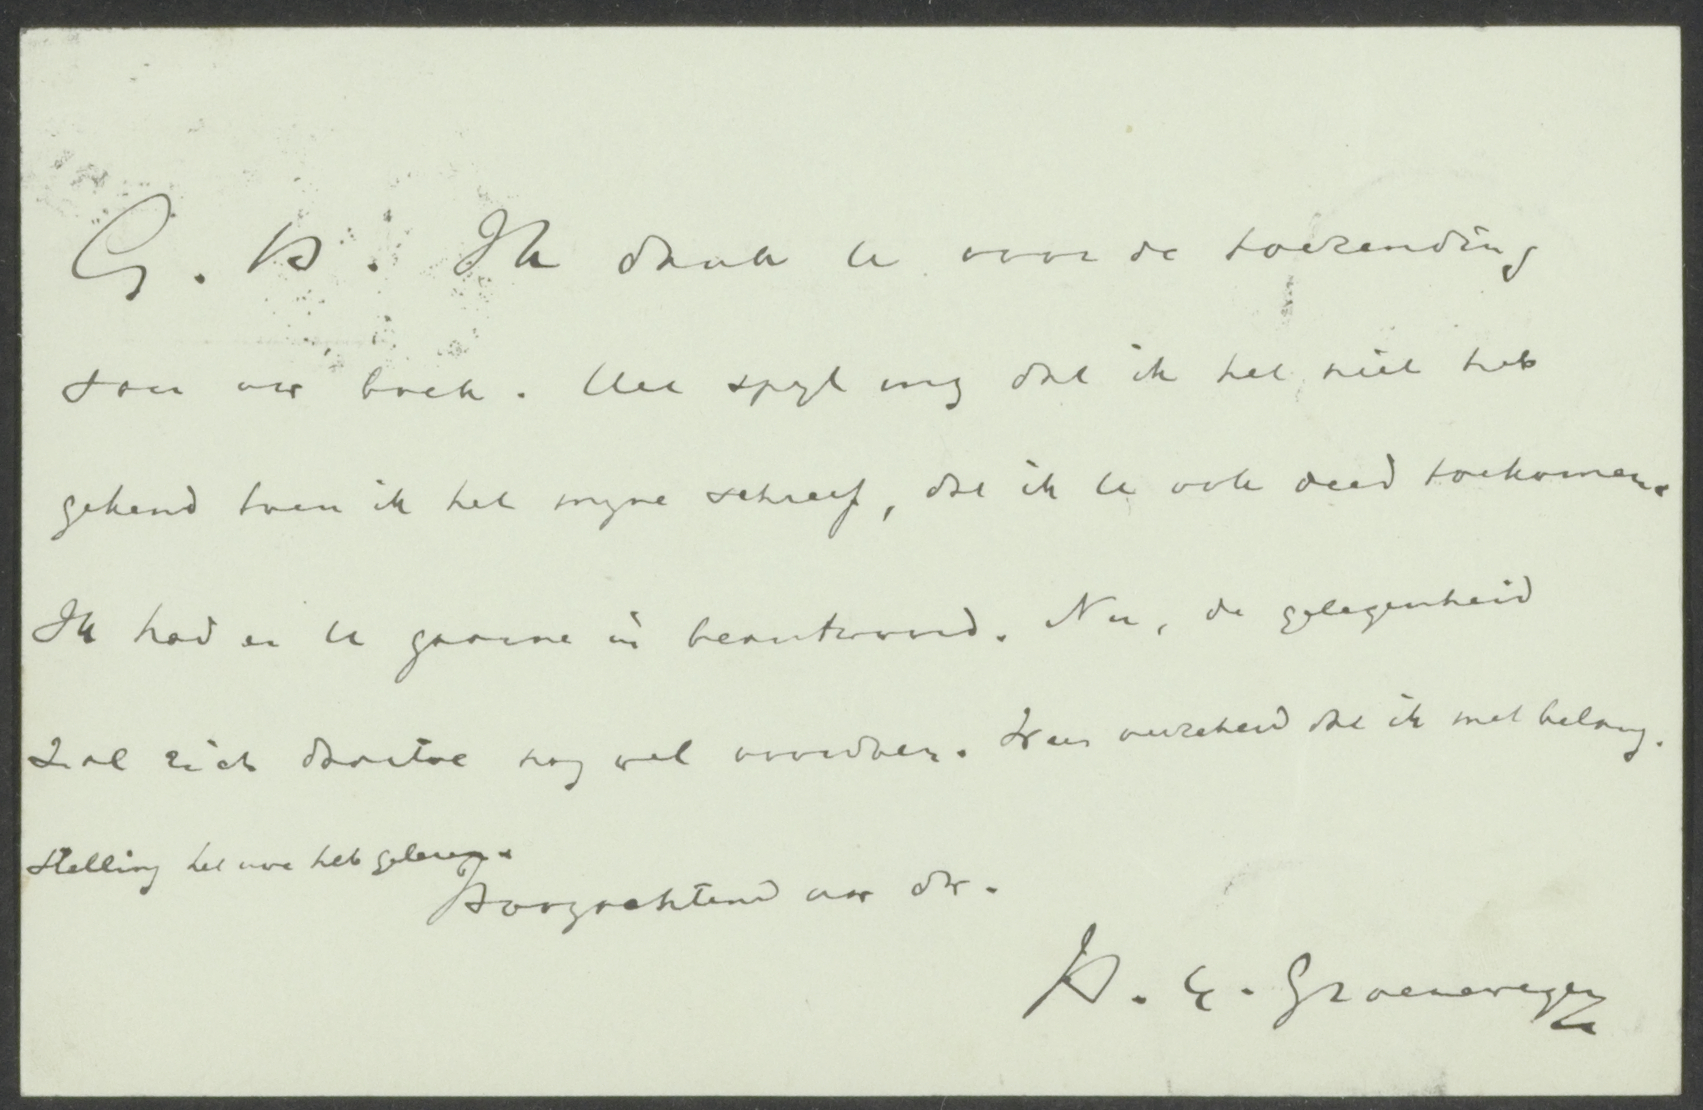 G. H. Ik dank U voor de toezending
van uw boek. Het spijt mij dat ik het niet heb
gekend toen ik het mijne schreef, dat ik U ook deed toekomen.
Ik had er U gaarne in beantwoord. Nu, de gelegenheid
zal zich daartoe nog wel voordoen. Wees verzekerd dat ik met belang-
stelling het uwe heb gelezen.
Hoogachtend uw dr.
H. Y. Groenewegen